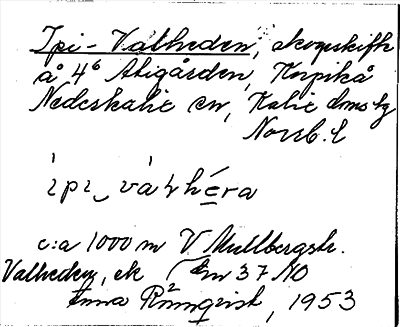 Ipi-Valheden, skogsskifte
å 4⁶ Stigården, Korpikå
Nederkalix sn, Kalix dms hg
Norrb. l
ìpı̣ váḷhéra
c:a 1000 m V Mullbergstr.
Valheden, ek Km 37 NO
Anna Rönnqvist, 1953